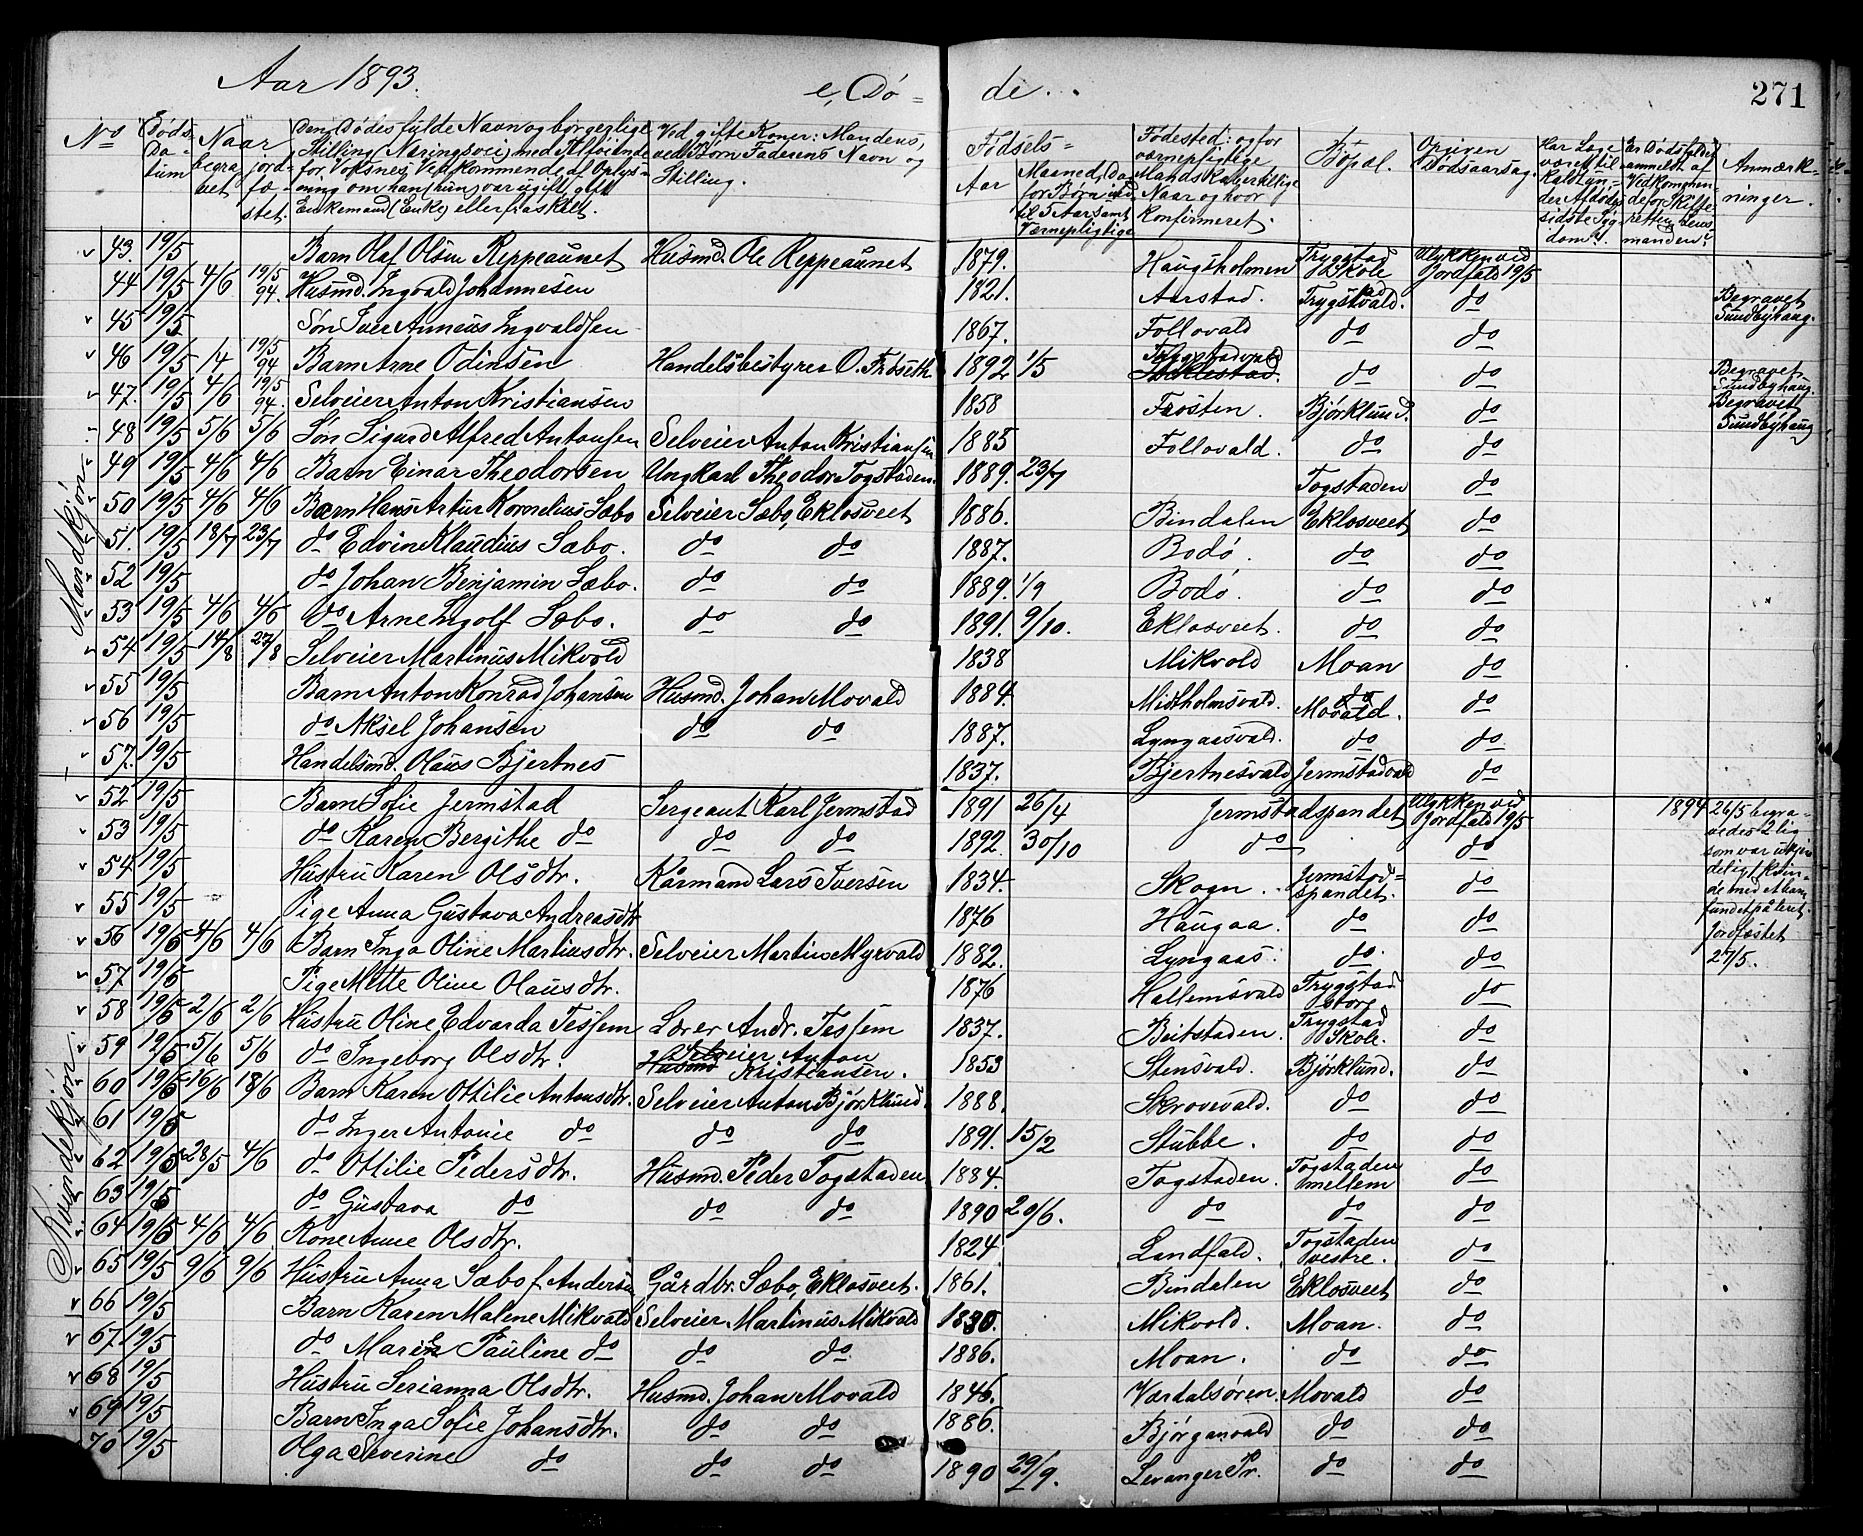 Aar 1893. e, Dö = de. 271
No Döds Datum Naar begravet jordfæstet. Den Dödes fulde Navn og borgerlige Stilling (Næringsvei) med Tilföiende for Voksnes Vedkommende af Oplysning om han (hun) var ugift, gift Enkemand (Enke) eller fraskilt. Ved gifte Koner: Mandens, ved Börn Faderens Navn og Stilling. Födsels= Aar Maaned, Dag for Börn ind til 5 Aar samt Værnepligtige Födested: og for værnepligtige Mandskaber tillige Naar og hvor konfirmeret. Bopæl. Opgiven Dödsaarsag. Har Læge været tilkaldt under Afdödes sidste Sygdom? Er Dödsfaldet anmeldt af Vedkommende for Skifteretten Lensmanden? Anmærkninger.
Mandkjön
43. 19/5 Barn Olaf Olsen Reppeaunet Husmd. Ole Reppeaunet 1879. Haugsholmen Trygstad Skole Ulykken ved Jordfald 19/5
44 19/5 4/6 19/5 94. Husmd. Ingvald Johannesen 1821. Aarstad. Trygstadvald. do Begravet Sundbyhaug.
45 19/5 Sön Iver Anneus Ingvaldsen 1867. Follovald do do
46 19/5 1/4 19/5 94 Barn Arne Odinsen Handelsbestyrer O. Fröseth 1892 1/5 Trygstadvald Stiklestad. do do Begravet Sundbyhaug.
47. 19/5 4/6 19/5 94. Selveier Anton Kristiansen 1858 Frosten. Björklund. do Begravet Sundbyhaug
48 19/5 5/6 5/6 Sön Sigurd Alfred Antonsen Selveier Anton Kristiansen 1885 Follovald. do do
49 19/5 4/6 4/6 Barn Einar Theodorsen Ungkarl Theodor Togstaden. 1889. 23/7 Togstaden do
50 19/5 4/6 4/6 Barn Hans Artur Kornelius Sæbo Selveier Sæbo, Eklosveet 1886. Bindalen Eklosveet do
51. 19/5 18/7 23/7 do Edvin Klaudius Sæbo. do do 1887. Bodö. do do
52 19/5 do Johan Benjamin Sæbo. do do 1889. 1/9 Bodö. do do
53 19/5 4/6 4/6 do Arne Ingolf Sæbo. do do 1891. 9/10. Eklosveet. do do
54 19/5 14/8 27/8 Selveier Martinus Mikvold 1838 Mikvold Moan do
55 19/5 Barn Anton Konrad Johansen Husmd. Johan Movald 1884. Midtholmsvald. do do
56 19/5 do Aksel Johansen do do 1887. Lyngaasvald. Movald. do do
57. 19/5 Handelsmd. Olaus Bjertnes 1837. Bjertnesvald Jermstadvald do
Kvindekjön
52 19/5 Barn Sofie Jermstad Sergeant Karl Jermstad 1891 26/4 Jermstadspandet Ulykken ved Jordfald 19/5 1894 26/5 begravedes 2 lig som var ukjendeligt Kvinde med et barn fundet på Leret. Jordfæstet 27/5.
53 19/5 do Karen Bergithe do do do 1892. 30/10 do do
54 19/5 Hustru Karen Olsdtr. Kårmand Lars Iversen 1834. Skogn. Jermstadspandet. do
55 19/5 Pige Anna Gustava Andreasdtr 1876 Haugaa. do do
56 19/5 4/6 4/6 Barn Inga Oline Martinusdtr. Selveier Martinus Myrvald 1882. Lyngaas. do. do
57 19/5 Pige Mette Oline Olausdtr. 1876 Hallemsvald Trygstad store do
58 19/5 2/6 2/6 Hustru Oline Edvarda Tessem Lærer Andr. Tessem 1837. Beitstaden. Trygstad Skole. do
59 19/5 5/6 5/6 do Ingeborg Olsdtr. Husmd Selveier Anton Kristiansen. 1853 Stensvald. Björklund. do
60 19/5 16/6 18/6 Barn Karen Ottilie Antonsdtr. Selveier Anton Björklund. 1888. Skrovevald. do do
61 19/5 do Inger Antonie do do do 1891. 15/2 Stubbe. do do
62 19/5 28/5 4/6 do Ottilie Pedersdtr. Husmd. Peder Togstaden 1884. Togstaden. Togstaden mellem do
63 19/5 do Gustava do do do 1890 20/6. do do do
64 19/5 4/6 4/6 Kone Anne Olsdtr. 1824 Landfald. Togstaden vestre. do
65 19/5 9/6 9/6 Hustru Anna Sæbo f. Andersen Gårdbr. Sæbo, Eklosveet. 1861. Bindalen Eklosveet do
66 19/5 Barn Karen Malene Mikvald Selveier Martinus Mikvald 1880. Mikvold. Moan. do
67 19/5 do Maren Pauline do do do 1886. Moan. do do
68 19/5 Hustru Serianna Olsdtr. Husmd. Johan Movald 1846. Værdalsören. Movald do
69 19/5 Barn Inga Sofie Johansdtr. do do 1886. Björganvald do do
70 19/5 Olga Severine do do do 1890 29/9. Levanger Pr. do do